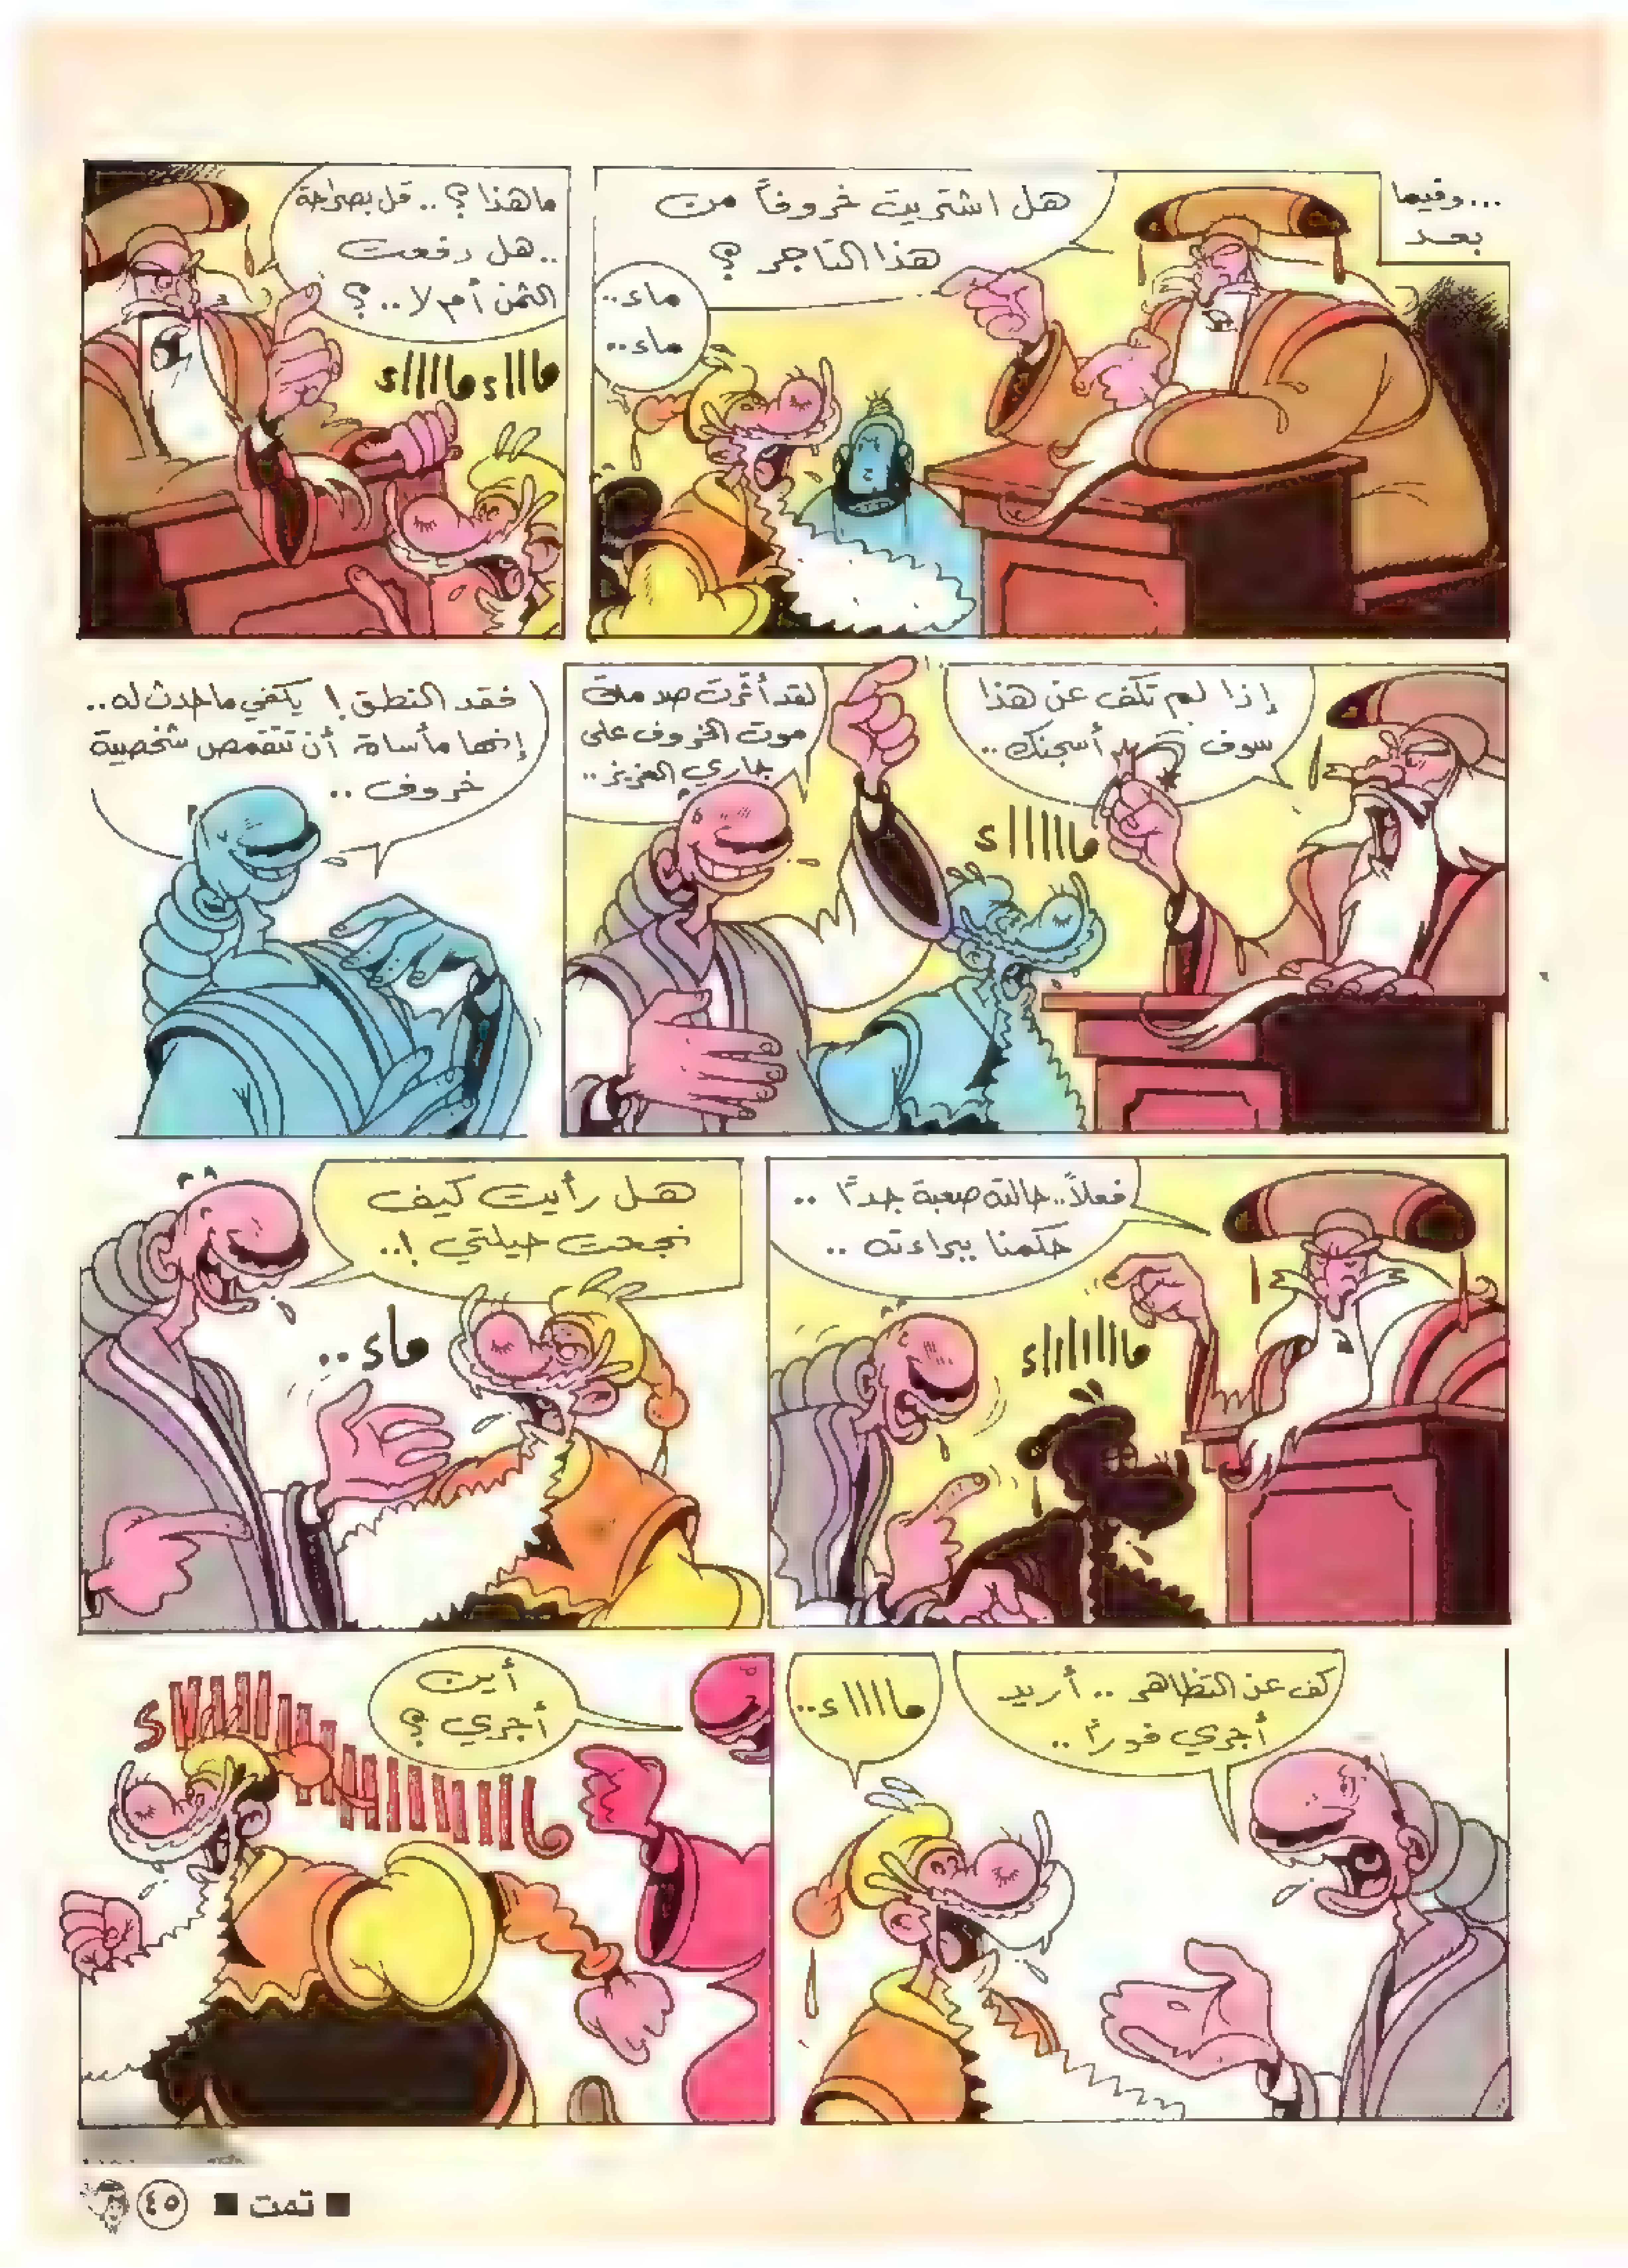 ...وفيما
بعد
هل اشتريت خروفاً من
هذا التاجر ؟
ماء..
ماء..
ما هذا ؟ .. قل بصراحة
.. هل دفعت
الثمن أم لا .. ؟
ماااء ماااااء
إذا لم تكف عن هذا
سوف أسجنك ..
ماااااء
لقد أثرت صدمة
موت الخروف على
جاري العزيز ..
فقد النطق ! يكفي ما حدث له ..
إنها مأساة أن تتقمص شخصية
خروف ..
فعلاً .. حالته صعبة جداً ..
حكمنا ببراءته ..
ماااااااء
هل رأيت كيف
نجحت حيلتي !..
ماء ..
كف عن التظاهر .. أريد
أجري فوراً ..
مااااء ..
أين
أجري ؟
ماااااااااااااااااء
■ تمت ■
٤٥